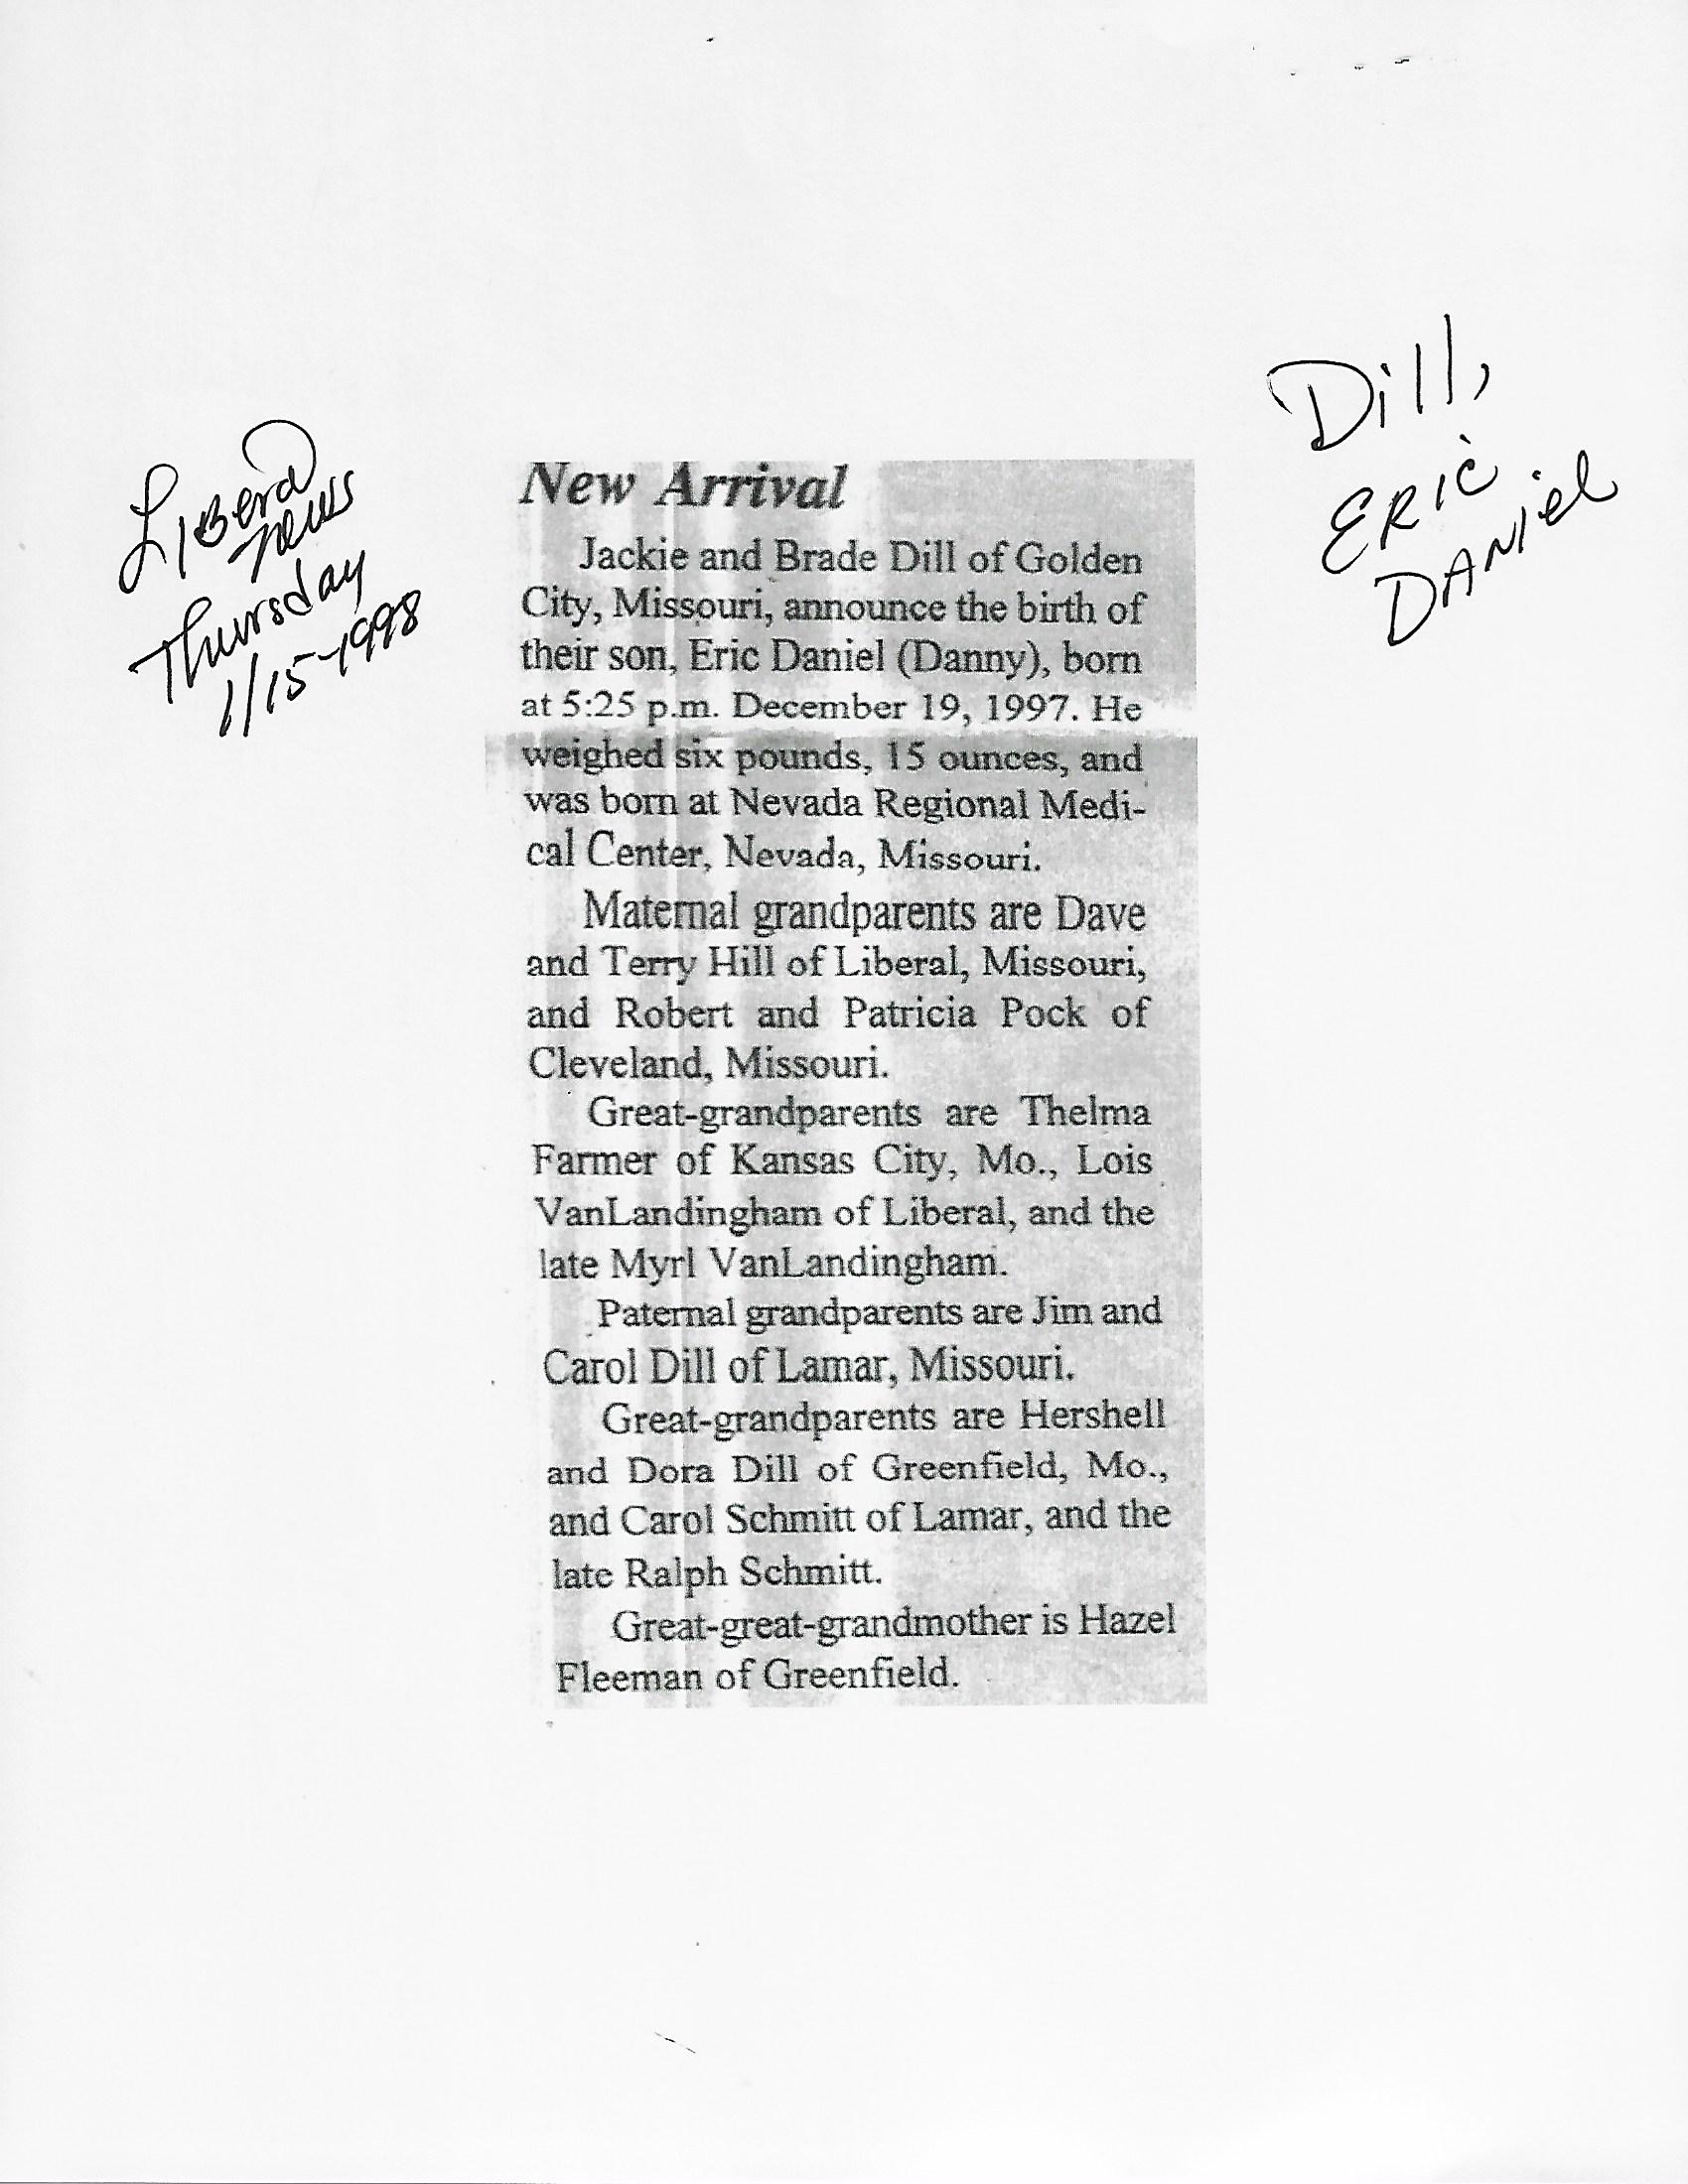 Dill,
Eric
Daniel
Liberal
News
Thursday
1/15-1998
New Arrival
Jackie and Brade Dill of Golden
City, Missouri, announce the birth of
their son, Eric Daniel (Danny), born
at 5:25 p.m. December 19, 1997. He
weighed six pounds, 15 ounces, and
was born at Nevada Regional Medi-
cal Center, Nevada, Missouri.
Maternal grandparents are Dave
and Terry Hill of Liberal, Missouri,
and Robert and Patricia Pock of
Cleveland, Missouri.
Great-grandparents are Thelma
Farmer of Kansas City, Mo., Lois
VanLandingham of Liberal, and the
late Myrl VanLandingham.
Paternal grandparents are Jim and
Carol Dill of Lamar, Missouri.
Great-grandparents are Hershell
and Dora Dill of Greenfield, Mo.,
and Carol Schmitt of Lamar, and the
late Ralph Schmitt.
Great-great-grandmother is Hazel
Fleeman of Greenfield.